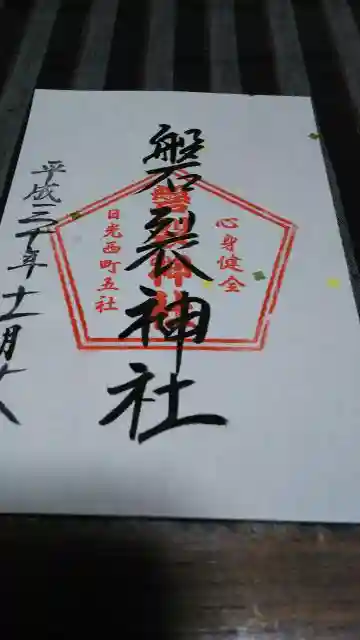 磐裂神社
心身健全
磐裂神社
日光西町五社
平成三十年十一月六